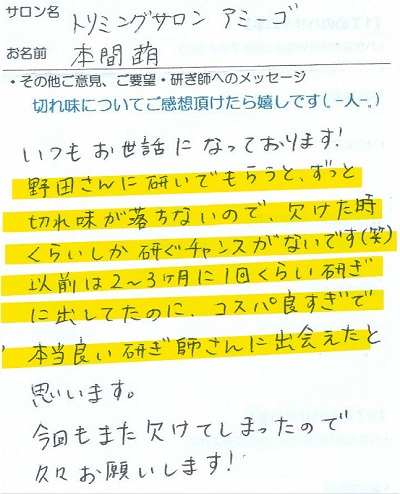 サロン名 トリミングサロン アミーゴ
お名前 本間萌
・その他ご意見、ご要望・研ぎ師へのメッセージ
切れ味についてご感想頂けたら嬉しです(.-人-.)
いつもお世話になっております!
野田さんに研いでもらうと、ずっと
切れ味が落ちないので、欠けた時
くらいしか研ぐチャンスがないです(笑)
以前は2~3ヶ月に1回くらい研ぎ
に出してたのに、コスパ良すぎで
本当良い研ぎ師さんに出会えたと
思います。
今回もまた欠けてしまったので
久々お願いします!